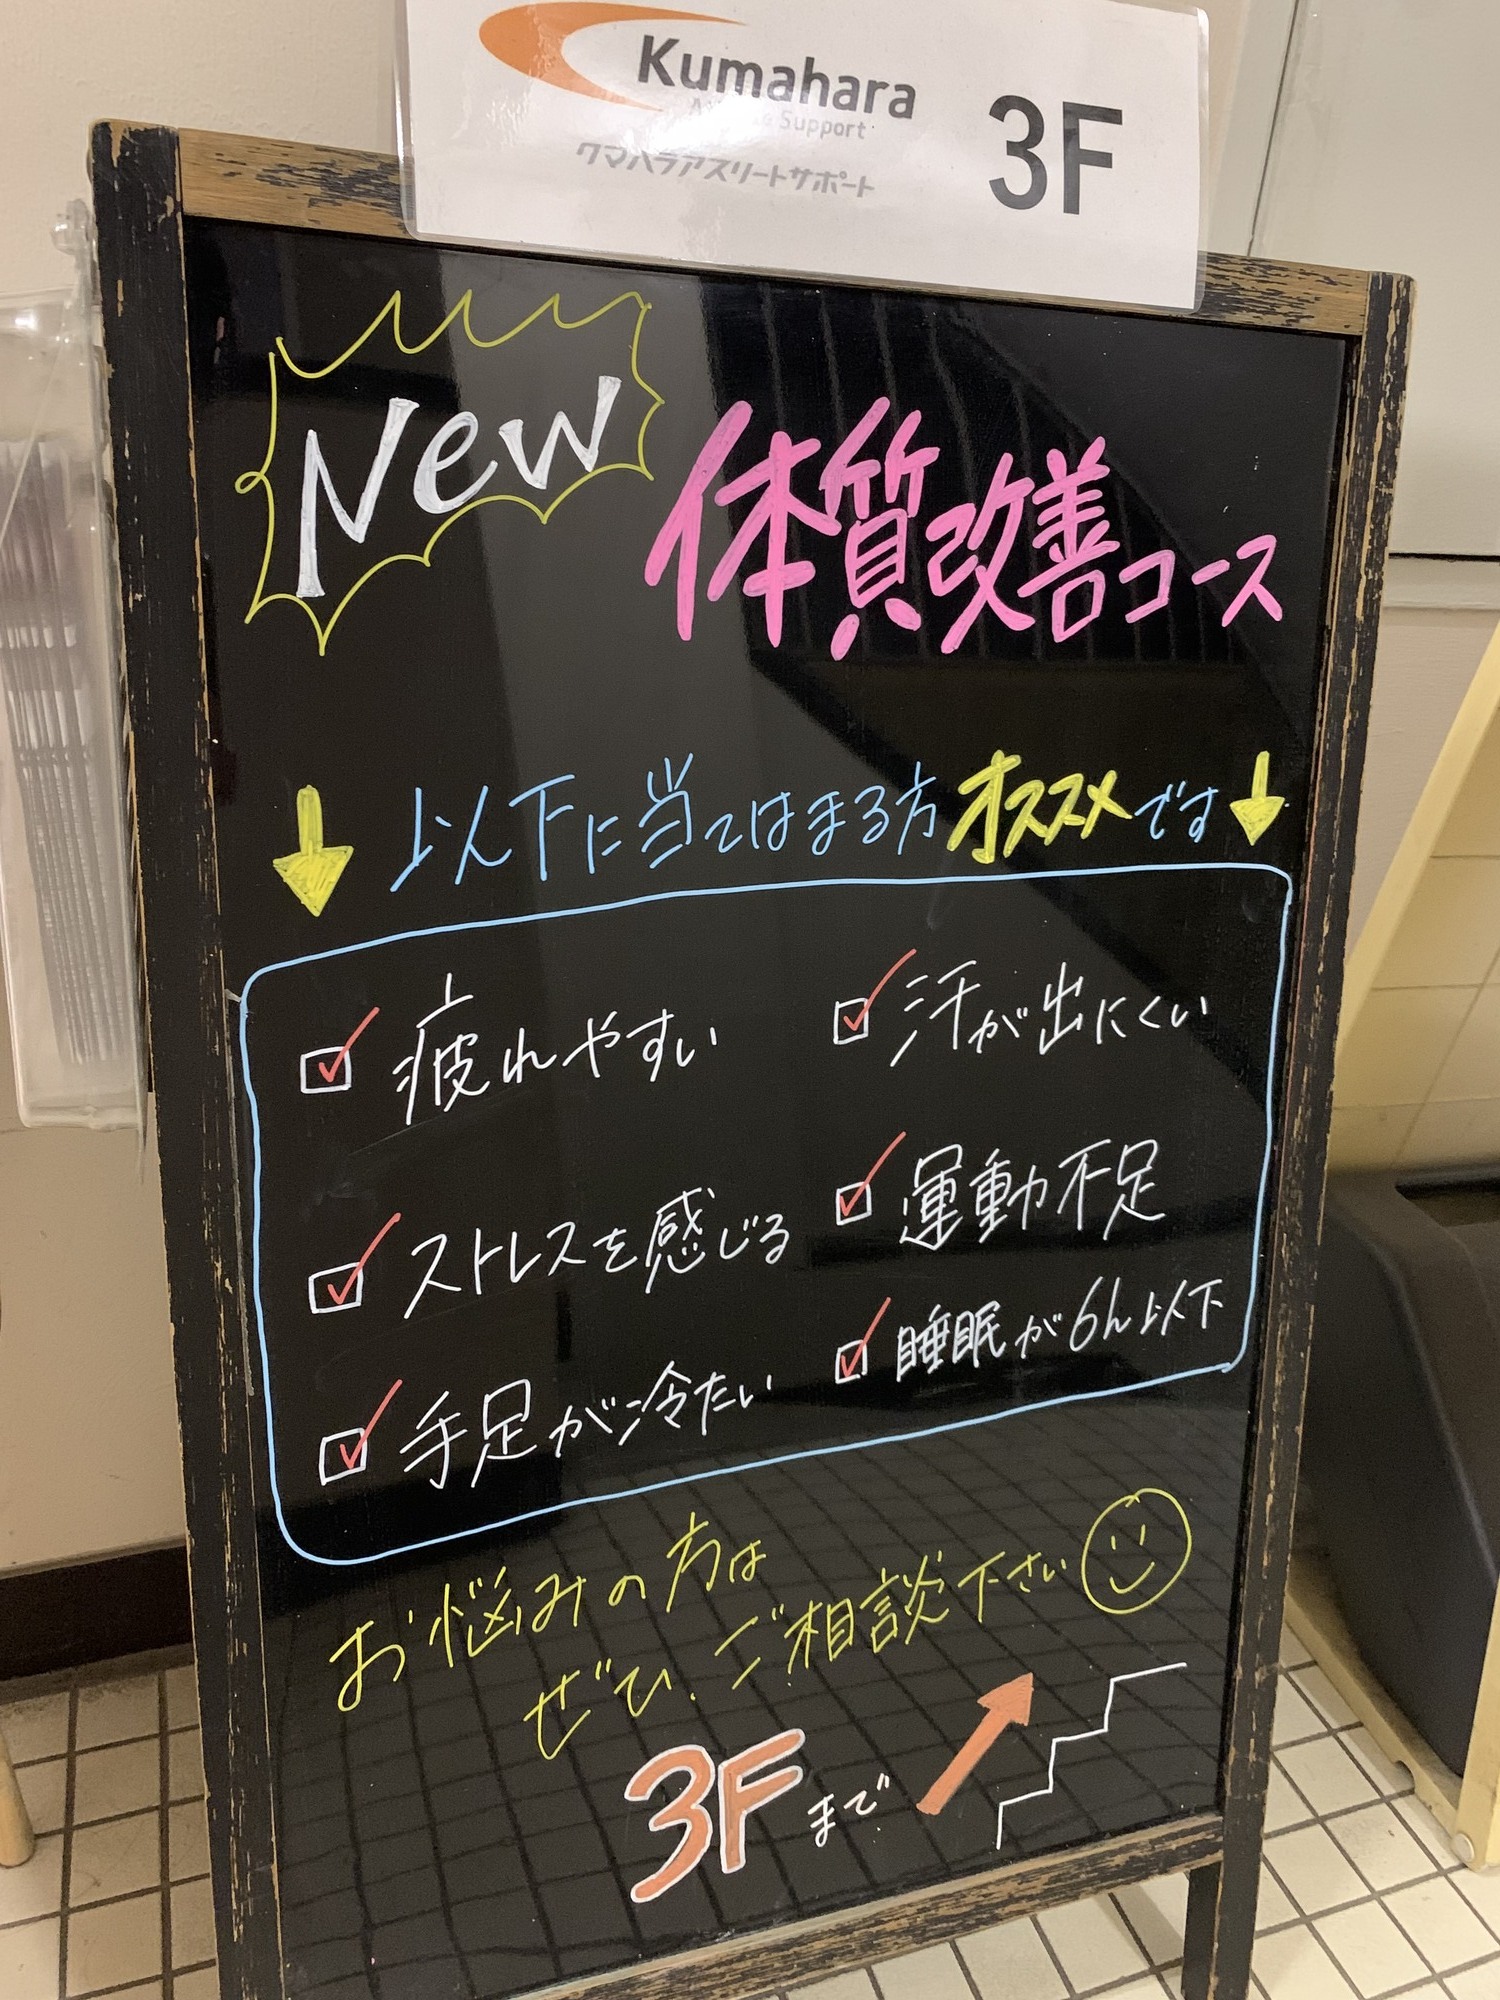 Kumahara
Support
クマハラアスリートサポート
3F
New
体質改善コース
以下に当てはまる方オススメです
疲れやすい
汗が出にくい
ストレスを感じる
運動不足
手足が冷たい
睡眠が6h以下
お悩みの方は
ぜひ、ご相談下さい
3Fまで